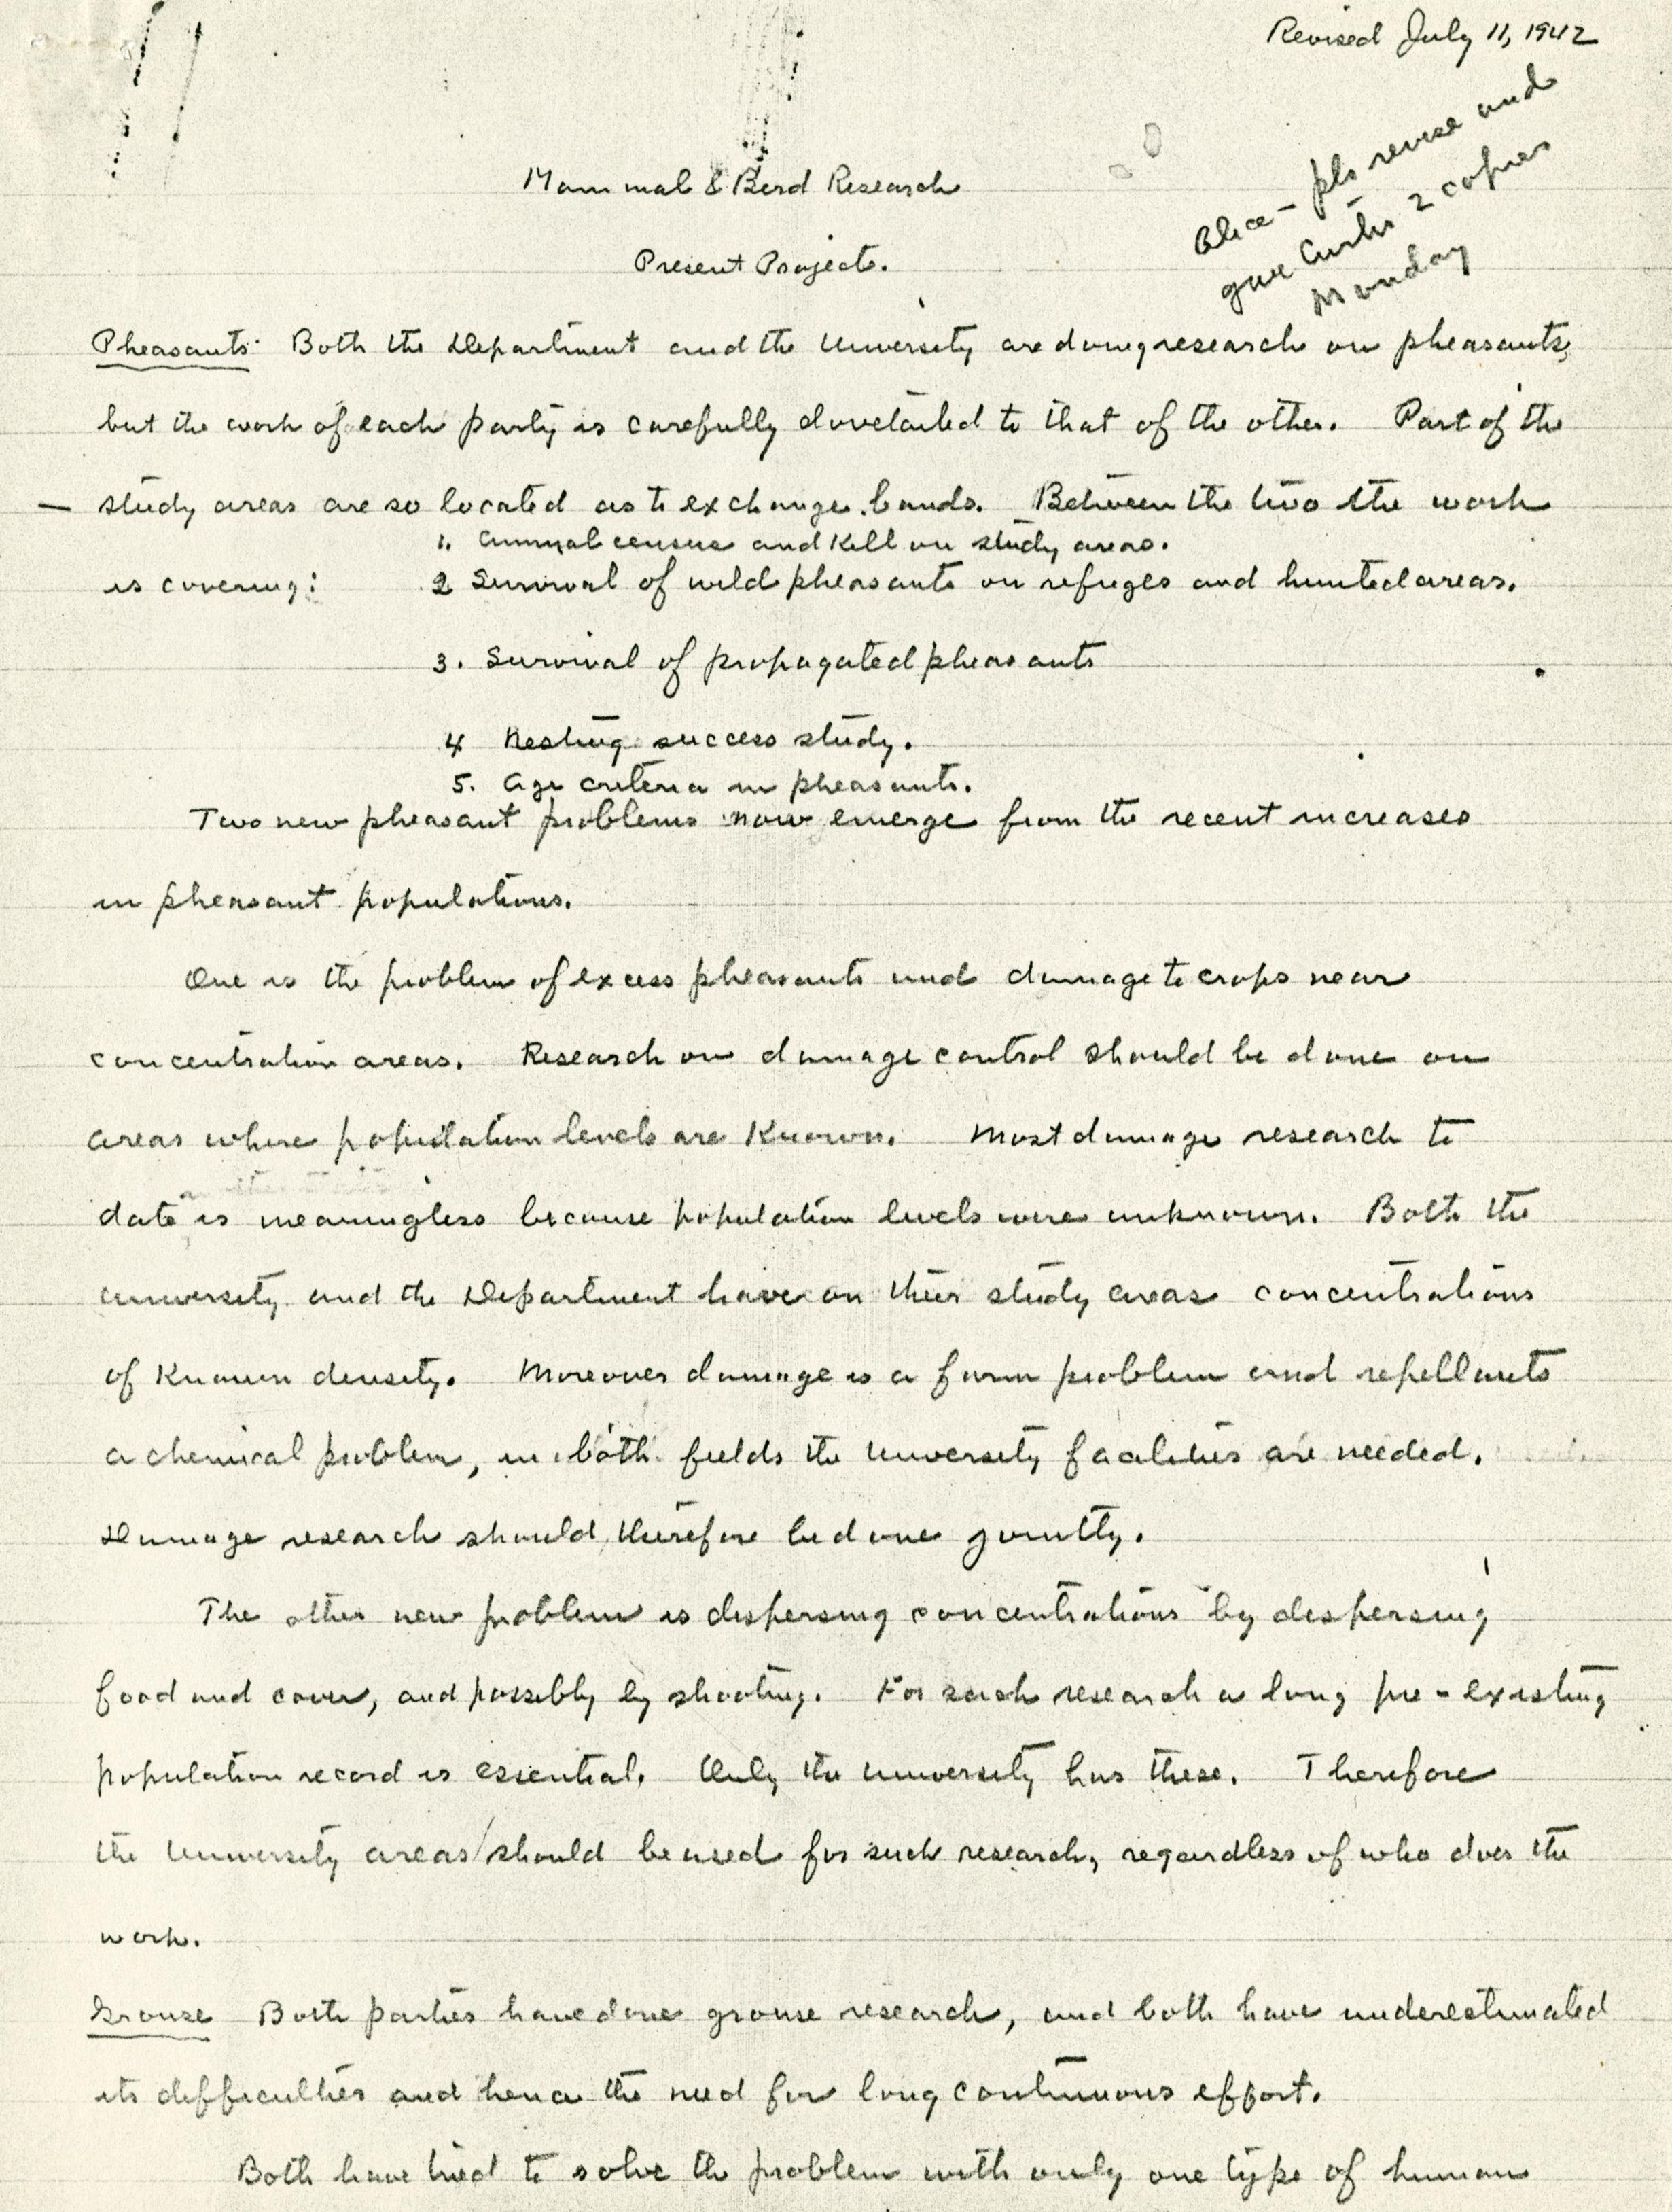 Revised July 11, 1942
Alice - pls revise and
give Curtis 2 copies
Monday
Mammal & Bird Research
Present Projects.
Pheasants: Both the Department and the University are doing research on pheasants,
but the work of each party is carefully dovetailed to that of the other. Part of the
— study areas are so located as to exchange bands. Between the two the work
1. Annual census and kill on study areas.
is covering: 2 Survival of wild pheasants on refuges and hunted areas.
3. Survival of propagated pheasants
4 Nesting success study.
5. Age criteria in pheasants.
Two new pheasant problems now emerge from the recent increases
in pheasant populations.
One is the problem of excess pheasants and damage to crops near
concentration areas. Research on damage control should be done on
areas where population levels are known. Most damage research to
date is meaningless because population levels were unknown. Both the
university and the Department have on their study areas concentrations
of known density. Moreover damage is a farm problem and repellants
a chemical problem, in both fields the University facilities are needed.
Damage research should therefore be done jointly.
The other new problem is dispersing concentrations by dispersing
food and cover, and possibly by shooting. For such research a long pre-existing
population record is essential. Only the university has these. Therefore
the University areas should be used for such research, regardless of who does the
work.
Grouse Both parties have done grouse research, and both have underestimated
its difficulties and hence the need for long continuous effort.
Both have tried to solve the problem with only one type of human